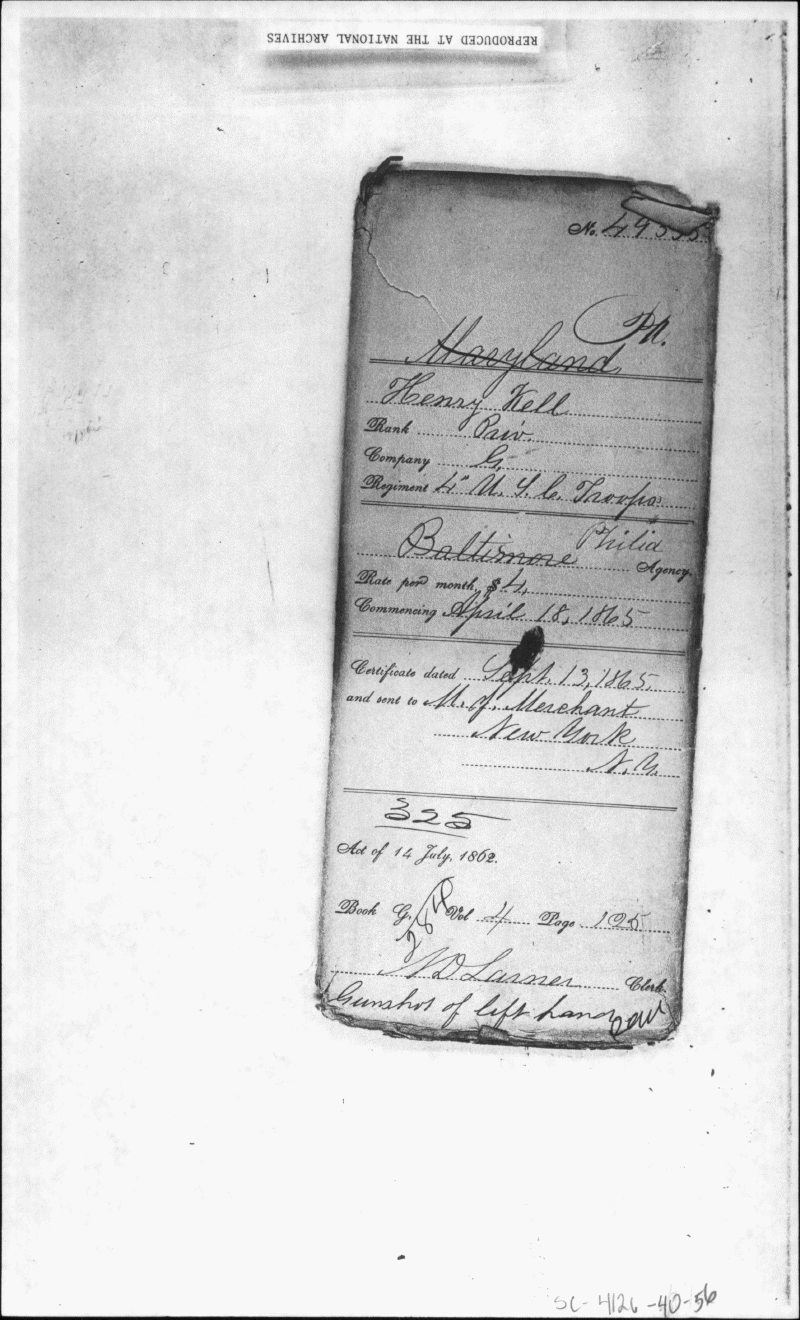 REPRODUCED AT THE NATIONAL ARCHIVES
No. 49555
Pa.
Maryland
Henry Kell
Rank Priv.
Company G,
Regiment 4" U. S. C. Troops
Philid
Baltimore Agency.
Rate per month, $4,
Commencing April 18, 1865
Certificate dated Sept. 13, 1865,
and sent to M. J. Merchant
New York
N. Y.
325
Act of 14 July, 1862.
Book G, Vol 4 Page 105
N D Larner Clerk.
Gunshot of left hand
SC-4126-40-56